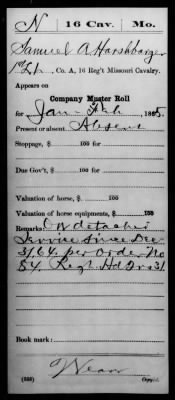 N 16 Cav. Mo.
Samuel A Harshbarger
1st Lt, Co. A, 16 Reg't Missouri Cavalry.
Appears on
Company Muster Roll
for Jan & Feb, 1865.
Present or absent Absent
Stoppage, $ 100 for
Due Gov't, $ 100 for
Valuation of horse, $ 100
Valuation of horse equipments, $ 100
Remarks: On detached
Service since Dec
31/64. per Order No
84. Regt Hd Qrs 31.
Book mark:
(858)
Copyist.